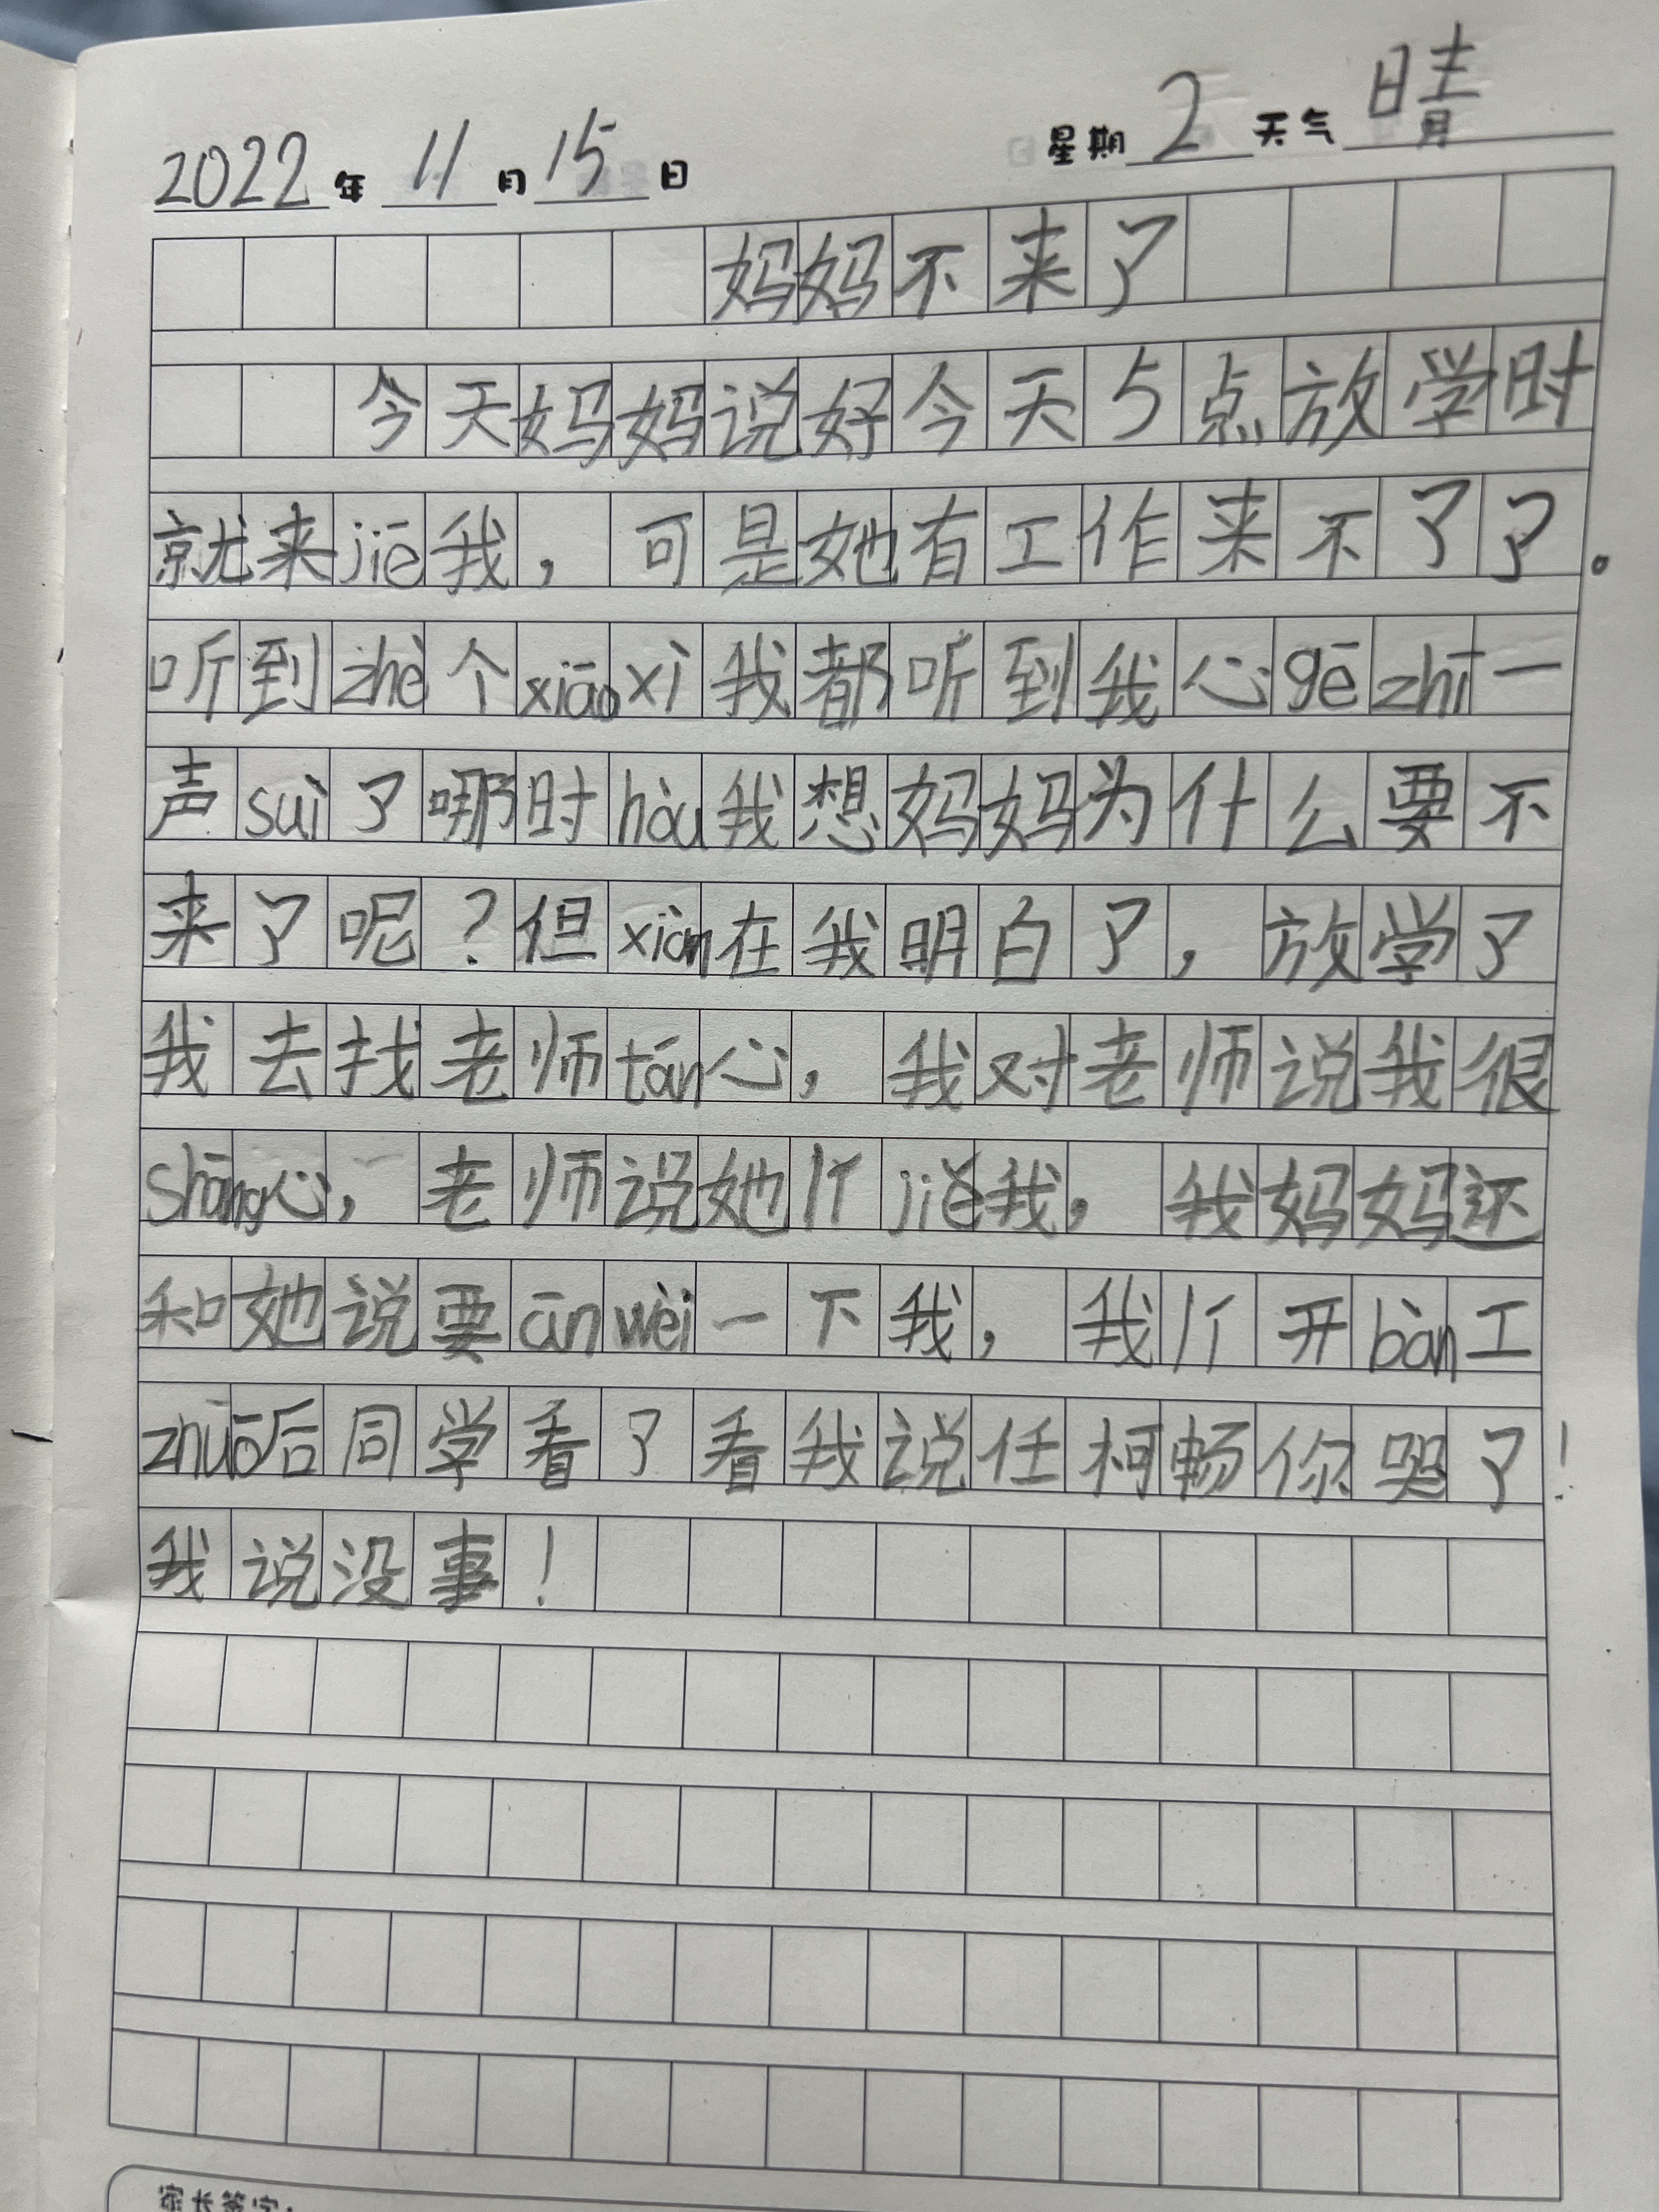 2022年 11月15日 星期2 天气晴
妈妈不来了
今天妈妈说好今天5点放学时
就来jiē我，可是她有工作来不了了。
听到zhè个xiāoxi我都听到我心gēzhī一
声suì了哪时hòu我想妈妈为什么要不
来了呢？但xiàn在我明白了，放学了
我去找老师tán心，我对老师说我很
shāng心，老师说她忄jiě我，我妈妈还
和她说要ānwèi一下我，我忄开bàn工
zhuō后同学看了看我说任柯畅你哭了！
我说没事！
家长签字：